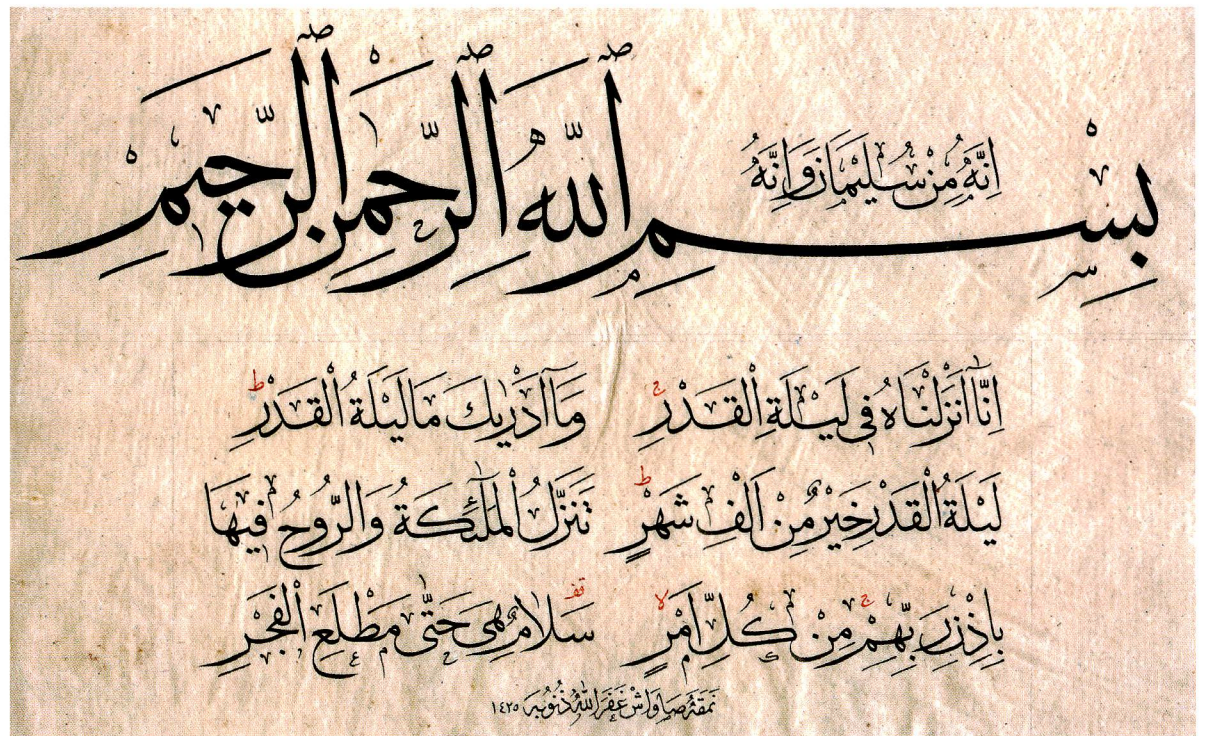 اِنَّهُ مِنْ سُلَيْمَانَ وَاِنَّهُ
بِسْمِ اللّٰهِ الرَّحْمٰنِ الرَّحِيمِ
اِنَّٓا اَنْزَلْنَاهُ فِى لَيْلَةِ الْقَدْرِ ج وَمَٓا اَدْرٰيكَ مَا لَيْلَةُ الْقَدْرِ ط
لَيْلَةُ الْقَدْرِ خَيْرٌ مِنْ اَلْفِ شَهْرٍ ط تَنَزَّلُ الْمَلٰٓئِكَةُ وَالرُّوحُ فِيهَا
بِاِذْنِ رَبِّهِمْ ج مِنْ كُلِّ اَمْرٍ لا سَلَامٌ قف هِىَ حَتّٰى مَطْلَعِ الْفَجْرِ
نمقه صاواش غَفَرَ اللّٰهُ ذُنُوبَهُ ١٤٢٥